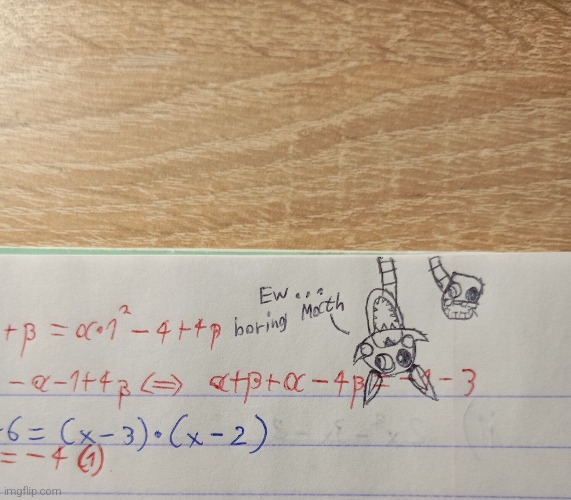 Ew...
boring Math
+β = α·1² - 4 + 4β
-α-1+4β <=> α+β+α-4β = -1-3
-6 = (x-3)·(x-2)
= -4 (1)
imgflip.com